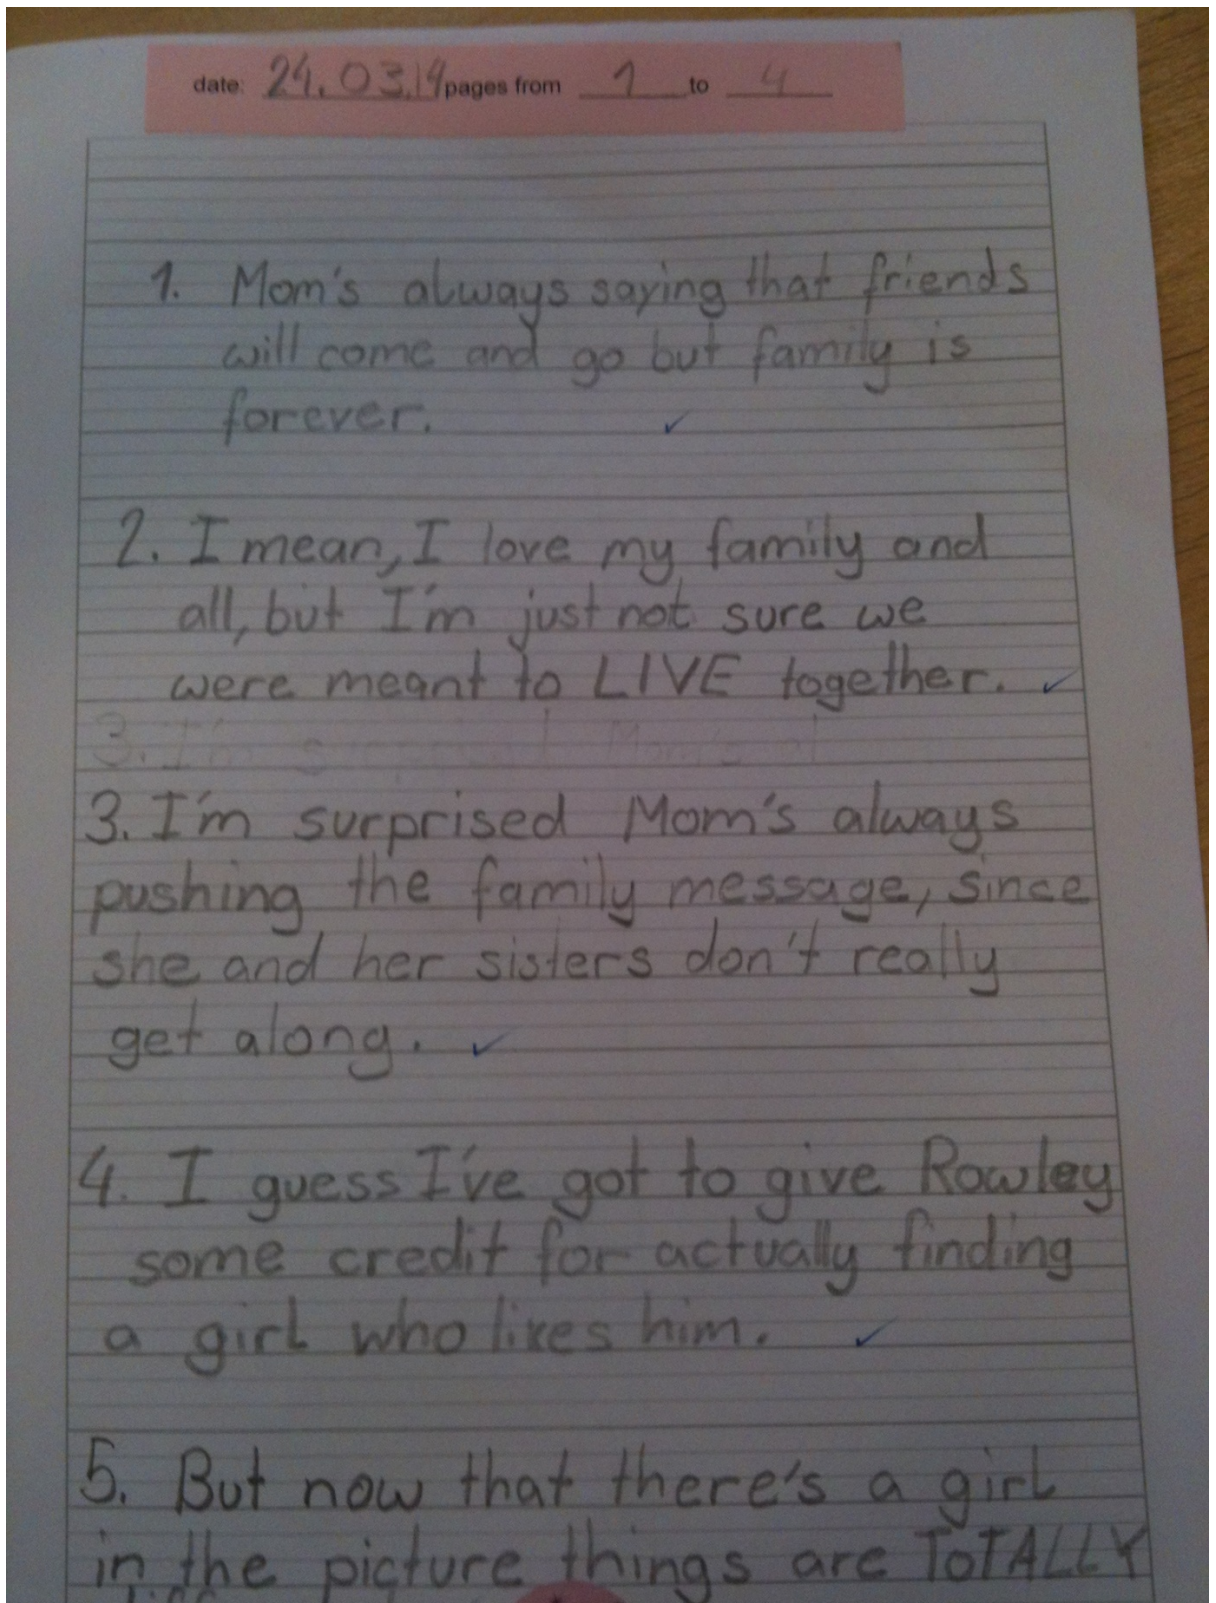 date: 24.03.14 pages from 1 to 4
1. Mom's always saying that friends
will come and go but family is
forever.
2. I mean, I love my family and
all, but I'm just not sure we
were meant to LIVE together.
3. I'm
3. I'm surprised Mom's always
pushing the family message, since
she and her sisters don't really
get along.
4. I guess I've got to give Rowley
some credit for actually finding
a girl who likes him.
5. But now that there's a girl
in the picture things are ToTALLY